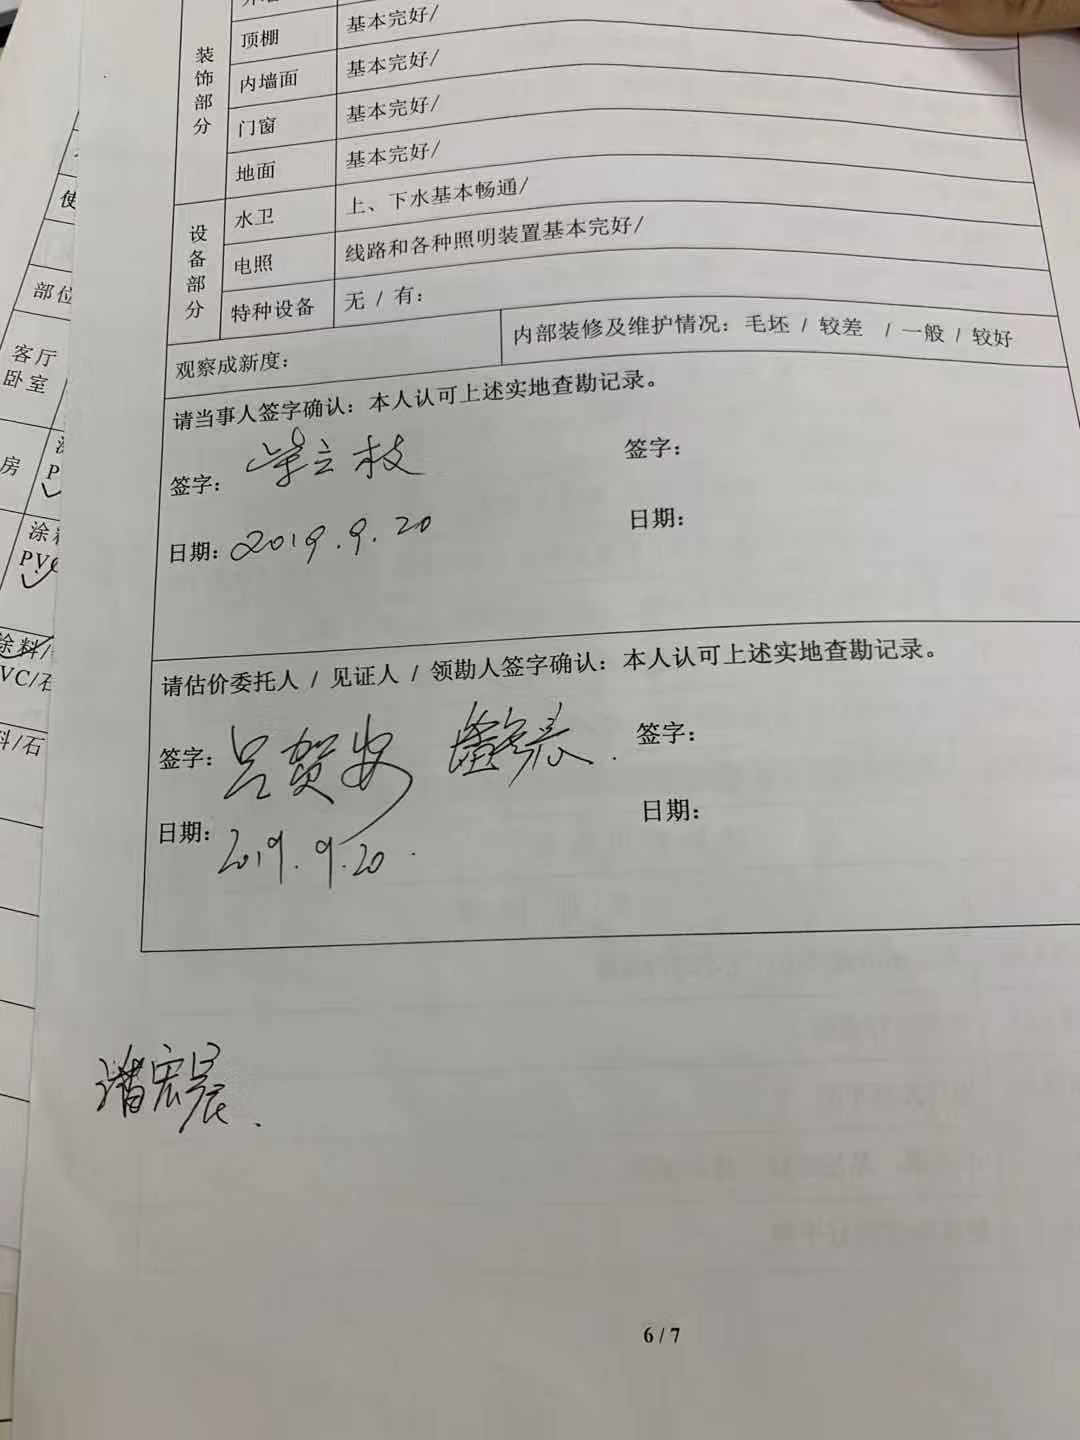 装饰部分
顶棚 基本完好/
内墙面 基本完好/
门窗 基本完好/
地面 基本完好/
设备部分
水卫 上、下水基本畅通/
电照 线路和各种照明装置基本完好/
特种设备 无 / 有:
观察成新度: 内部装修及维护情况: 毛坯 / 较差 / 一般 / 较好
请当事人签字确认: 本人认可上述实地查勘记录。
签字: 签字:
日期: 2019.9.20 日期:
请估价委托人 / 见证人 / 领勘人签字确认: 本人认可上述实地查勘记录。
签字: 吕贺安 签字:
日期: 2019.9.20. 日期:
6 / 7
使
部位
客厅
卧室
房
涂料/
VC/石
料/石